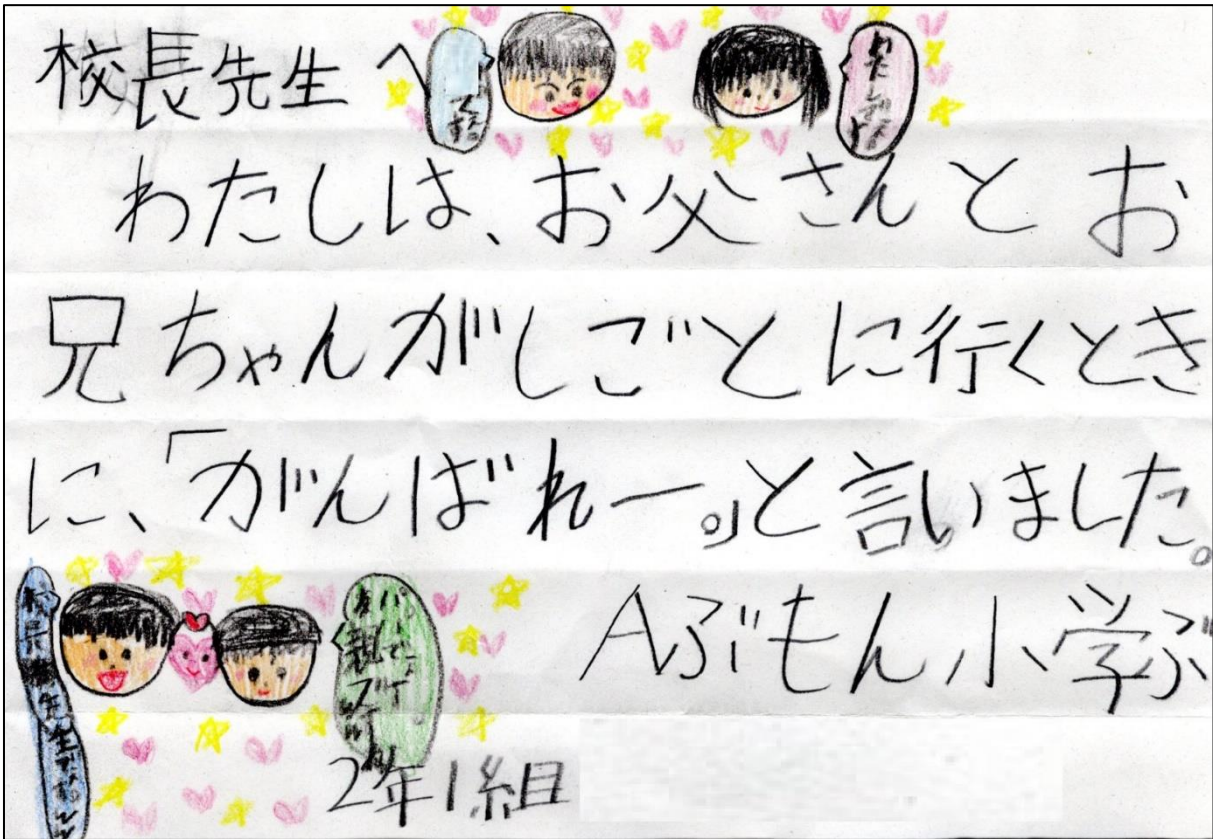 校長先生へ
わたしは、お父さんとお
兄ちゃんがしごとに行くとき
に、「がんばれー。」と言いました。
Aぶもん小学ぶ
2年1組